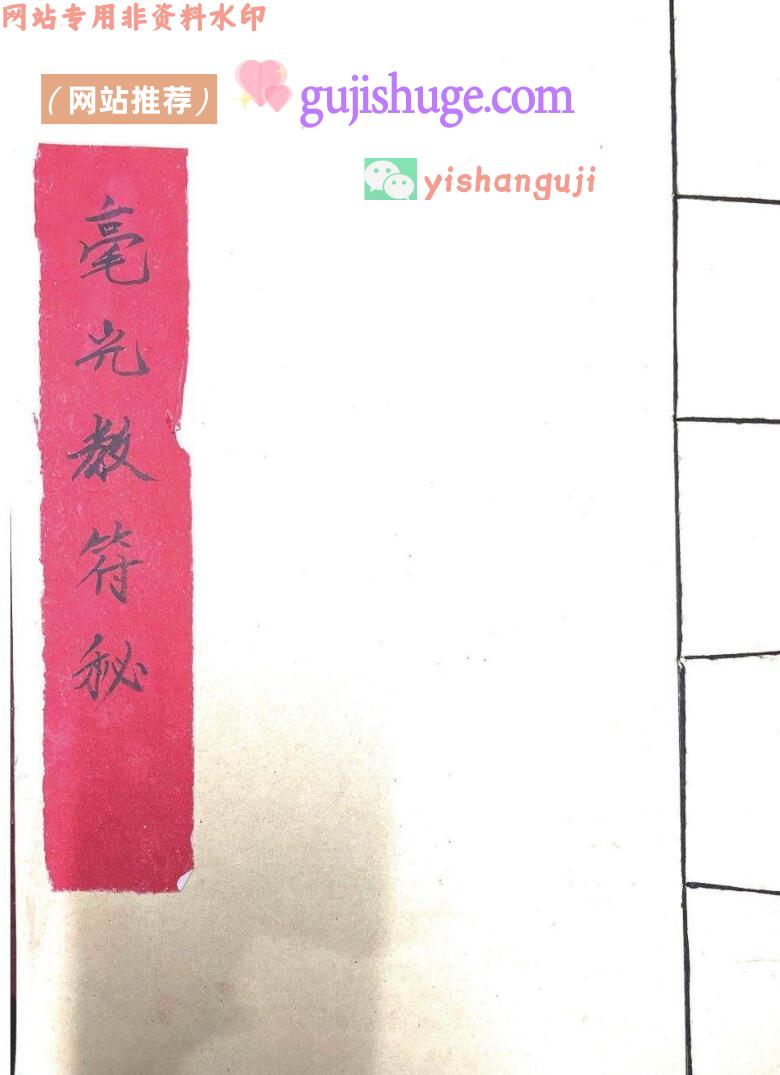 网站专用非资料水印
（网站推荐）
gujishuge.com
yishanguji
毫光教符秘